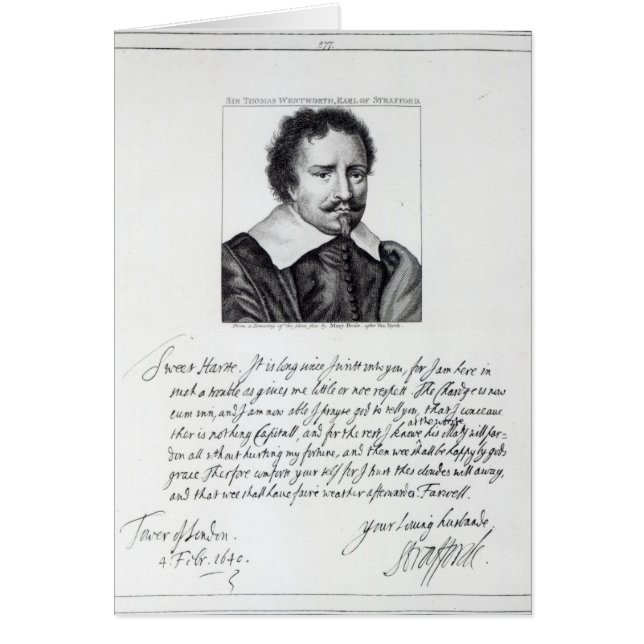 277.
SIR THOMAS WENTWORTH, EARL OF STRAFFORD.
From a Drawing of the same size by Mary Beale after Van Dyck.
Sweet Harte. It is long since I writt unto you, for I am here in
such a trouble as gives me little or noe respett. The Chardge is now
cum inn, and I am now able I prayse god to tell you, that I conceave
ther is nothing Capitall, and for the rest I knowe
at the worste
his Maty will par-
don all without hurting my fortune, and then wee shall be happy by gods
grace. Therfore comfort your self for I trust thes cloudes will away,
and that wee shall have faire weather afterwardes. Farwell.
Your loving husbande
Tower of London.
4. Febr. 1640.
Strafforde.